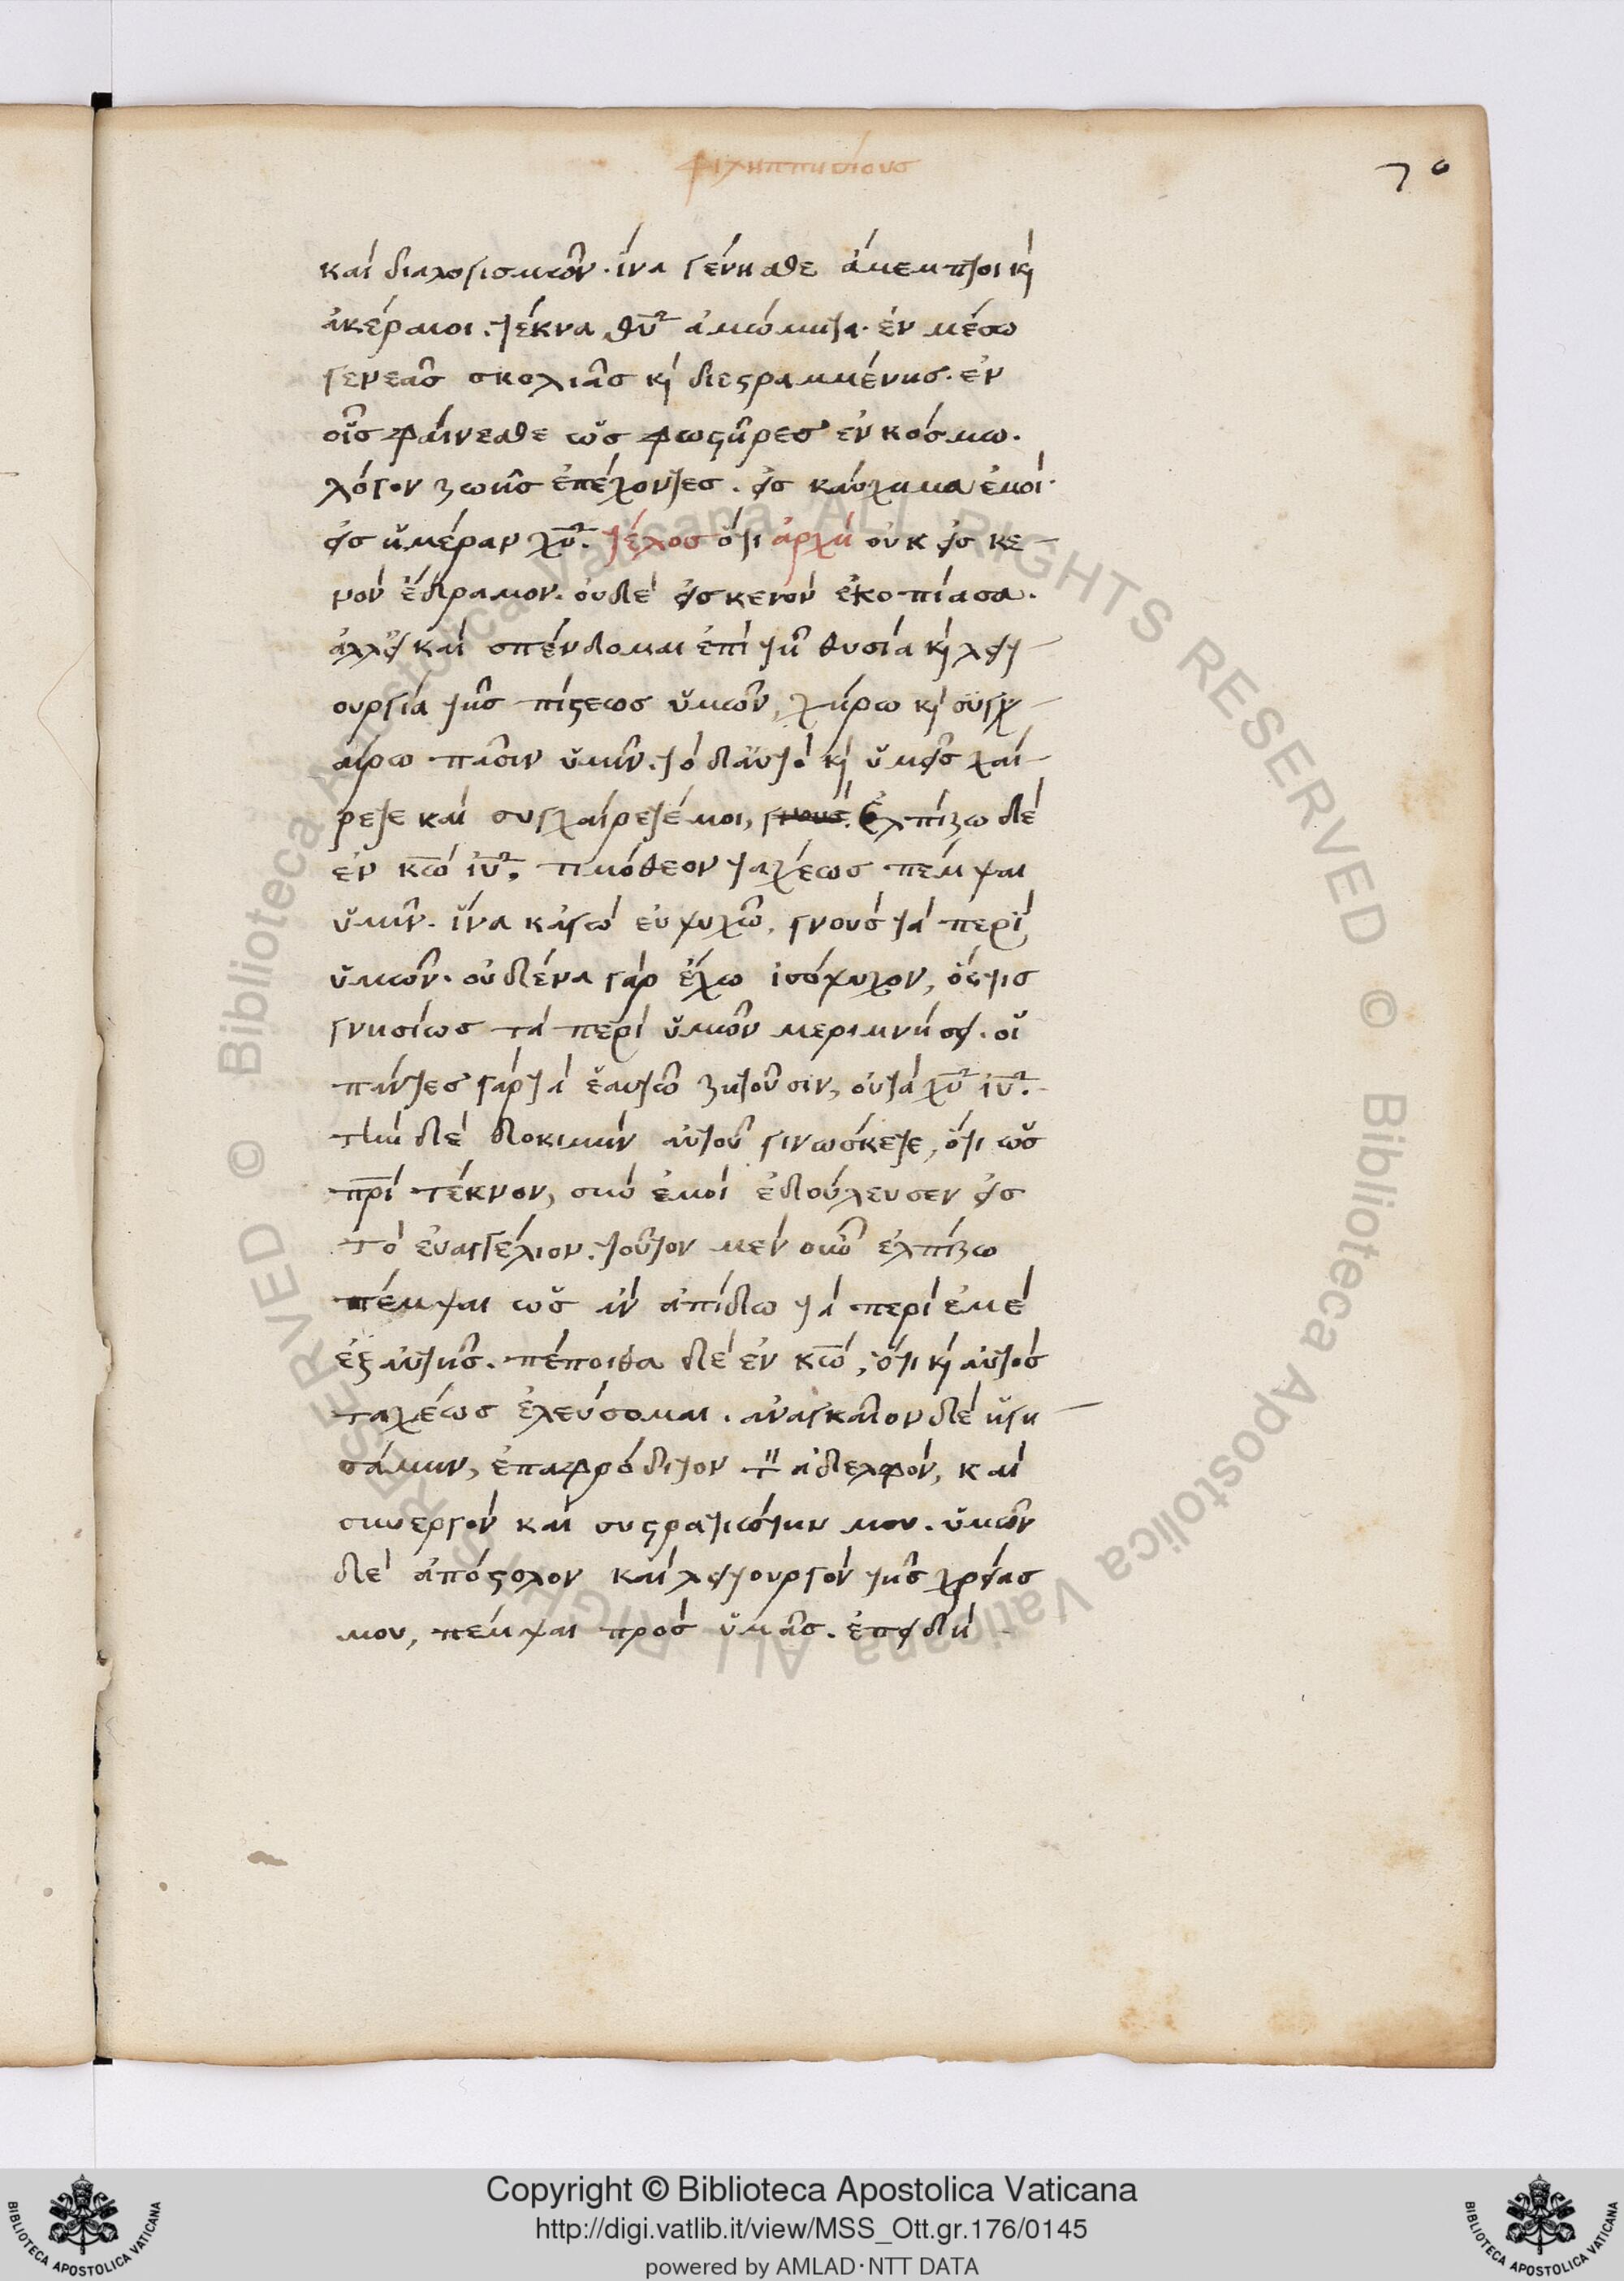 φιληππησίους
70
καὶ διαλογισμῶν. ἵνα γένησθε ἄμεμπτοι κὶ
ἀκέραιοι. τέκνα θῡ ἀμώμητα. ἐν μέσω
γενεᾶς σκολιᾶς κὶ διεστραμμένης. ἐν
οἷς φαίνεσθε ὡς φωστῆρες ἐν κόσμω.
λόγον ζωῆς ἐπέχοντες. εἰς καύχημα ἐμοὶ.
εἰς ἡμέραν χῡ. τέλος ὅτι ἀρχὴ οὐκ εἰς κε-
νὸν ἔδραμον. οὐδὲ εἰς κενὸν ἐκοπίασα.
ἀλλ' εἰ καὶ σπένδομαι ἐπὶ τῆ θυσία κὶ λειτ-
ουργία τῆς πίστεως ὑμῶν, χήρω κὶ συγχ-
αίρω πᾶσιν ὑμῖν. τὸ δ' αὐτὸ κὶ ὑμεῖς χαί-
ρετε καὶ συγχαίρετέ μοι, Ἐλπίζω δὲ
ἐν κω̄ ἰῡ. τιμόθεον ταχέως πέμψαι
ὑμῖν. ἵνα κἀγὼ εὐψυχῶ, γνοὺς τὰ περὶ
ὑμῶν. οὐδένα γὰρ ἔχω ἰσόψυχον, ὅστις
γνησίως τὰ περὶ ὑμῶν μεριμνήσει. οἱ
πάντες γὰρ τὰ ἑαυτῶ ζητοῦσιν, οὐ τὰ χῡ ἰῡ.
τὴν δὲ δοκιμὴν αὐτοῦ γινώσκετε, ὅτι ὡς
πρ̄ὶ τέκνον, σὺν ἐμοὶ ἐδούλευσεν εἰς
τὸ εὐαγγέλιον. τοῦτον μὲν οὖν ἐλπίζω
πέμψαι ὡς ἂν ἀπίδω τὰ περὶ ἐμὲ
ἐξ αὐτῆς. πέποιθα δὲ ἐν κω̄, ὅτι κὶ αὐτὸς
ταχέως ἐλεύσομαι. ἀναγκαῖον δὲ ἡγη-
σάμην, ἐπαφρόδιτον τ̄ ἀδελφὸν, καὶ
συνεργὸν καὶ συστρατιώτην μου. ὑμῶν
δὲ ἀπόστολον καὶ λειτουργὸν τῆς χρείας
μου, πέμψαι πρὸς ὑμᾶς. ἐπειδὴ
Copyright © Biblioteca Apostolica Vaticana
http://digi.vatlib.it/view/MSS_Ott.gr.176/0145
powered by AMLAD·NTT DATA